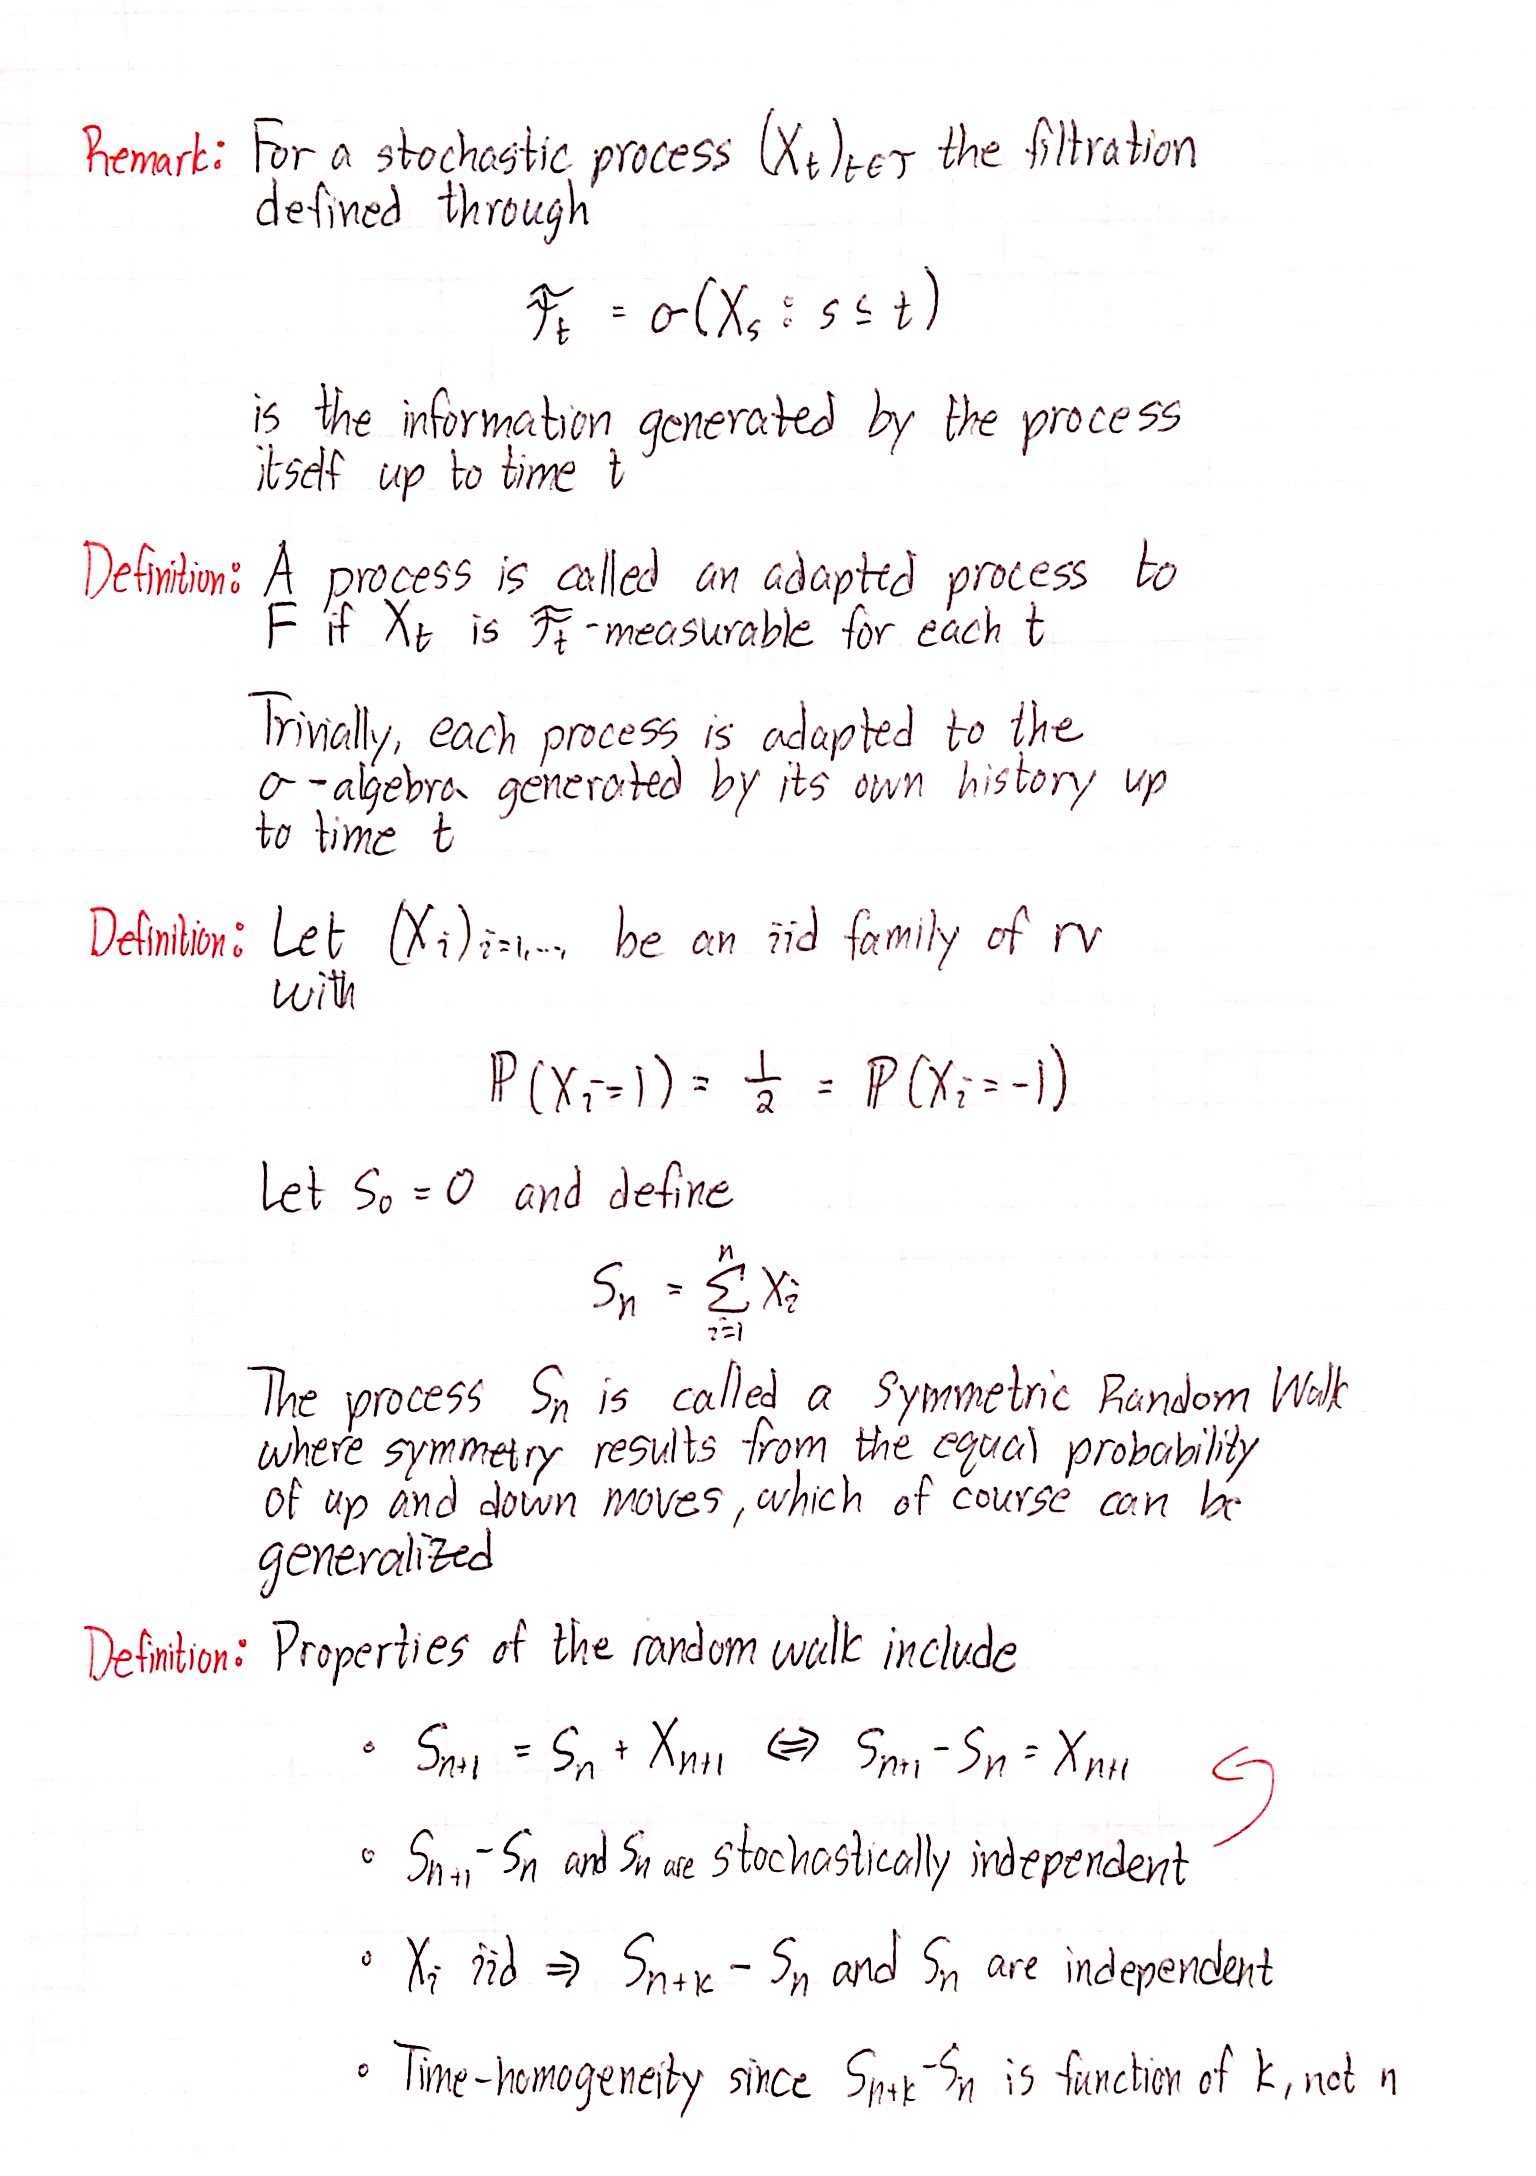 Remark: For a stochastic process (X_t)_{t∈T} the filtration
defined through
ℱ_t = σ(X_s : s ≤ t)
is the information generated by the process
itself up to time t
Definition: A process is called an adapted process to
F if X_t is ℱ_t-measurable for each t
Trivially, each process is adapted to the
σ-algebra generated by its own history up
to time t
Definition: Let (X_i)_{i=1,...,} be an iid family of rv
with
ℙ(X_i=1) = 1/2 = ℙ(X_i=-1)
Let S_0 = 0 and define
S_n = ∑_{i=1}^{n} X_i
The process S_n is called a Symmetric Random Walk
where symmetry results from the equal probability
of up and down moves, which of course can be
generalized
Definition: Properties of the random walk include
∘ S_{n+1} = S_n + X_{n+1} ⇔ S_{n+1} - S_n = X_{n+1}
∘ S_{n+1} - S_n and S_n are stochastically independent
∘ X_i iid ⇒ S_{n+k} - S_n and S_n are independent
∘ Time-homogeneity since S_{n+k} - S_n is function of k, not n